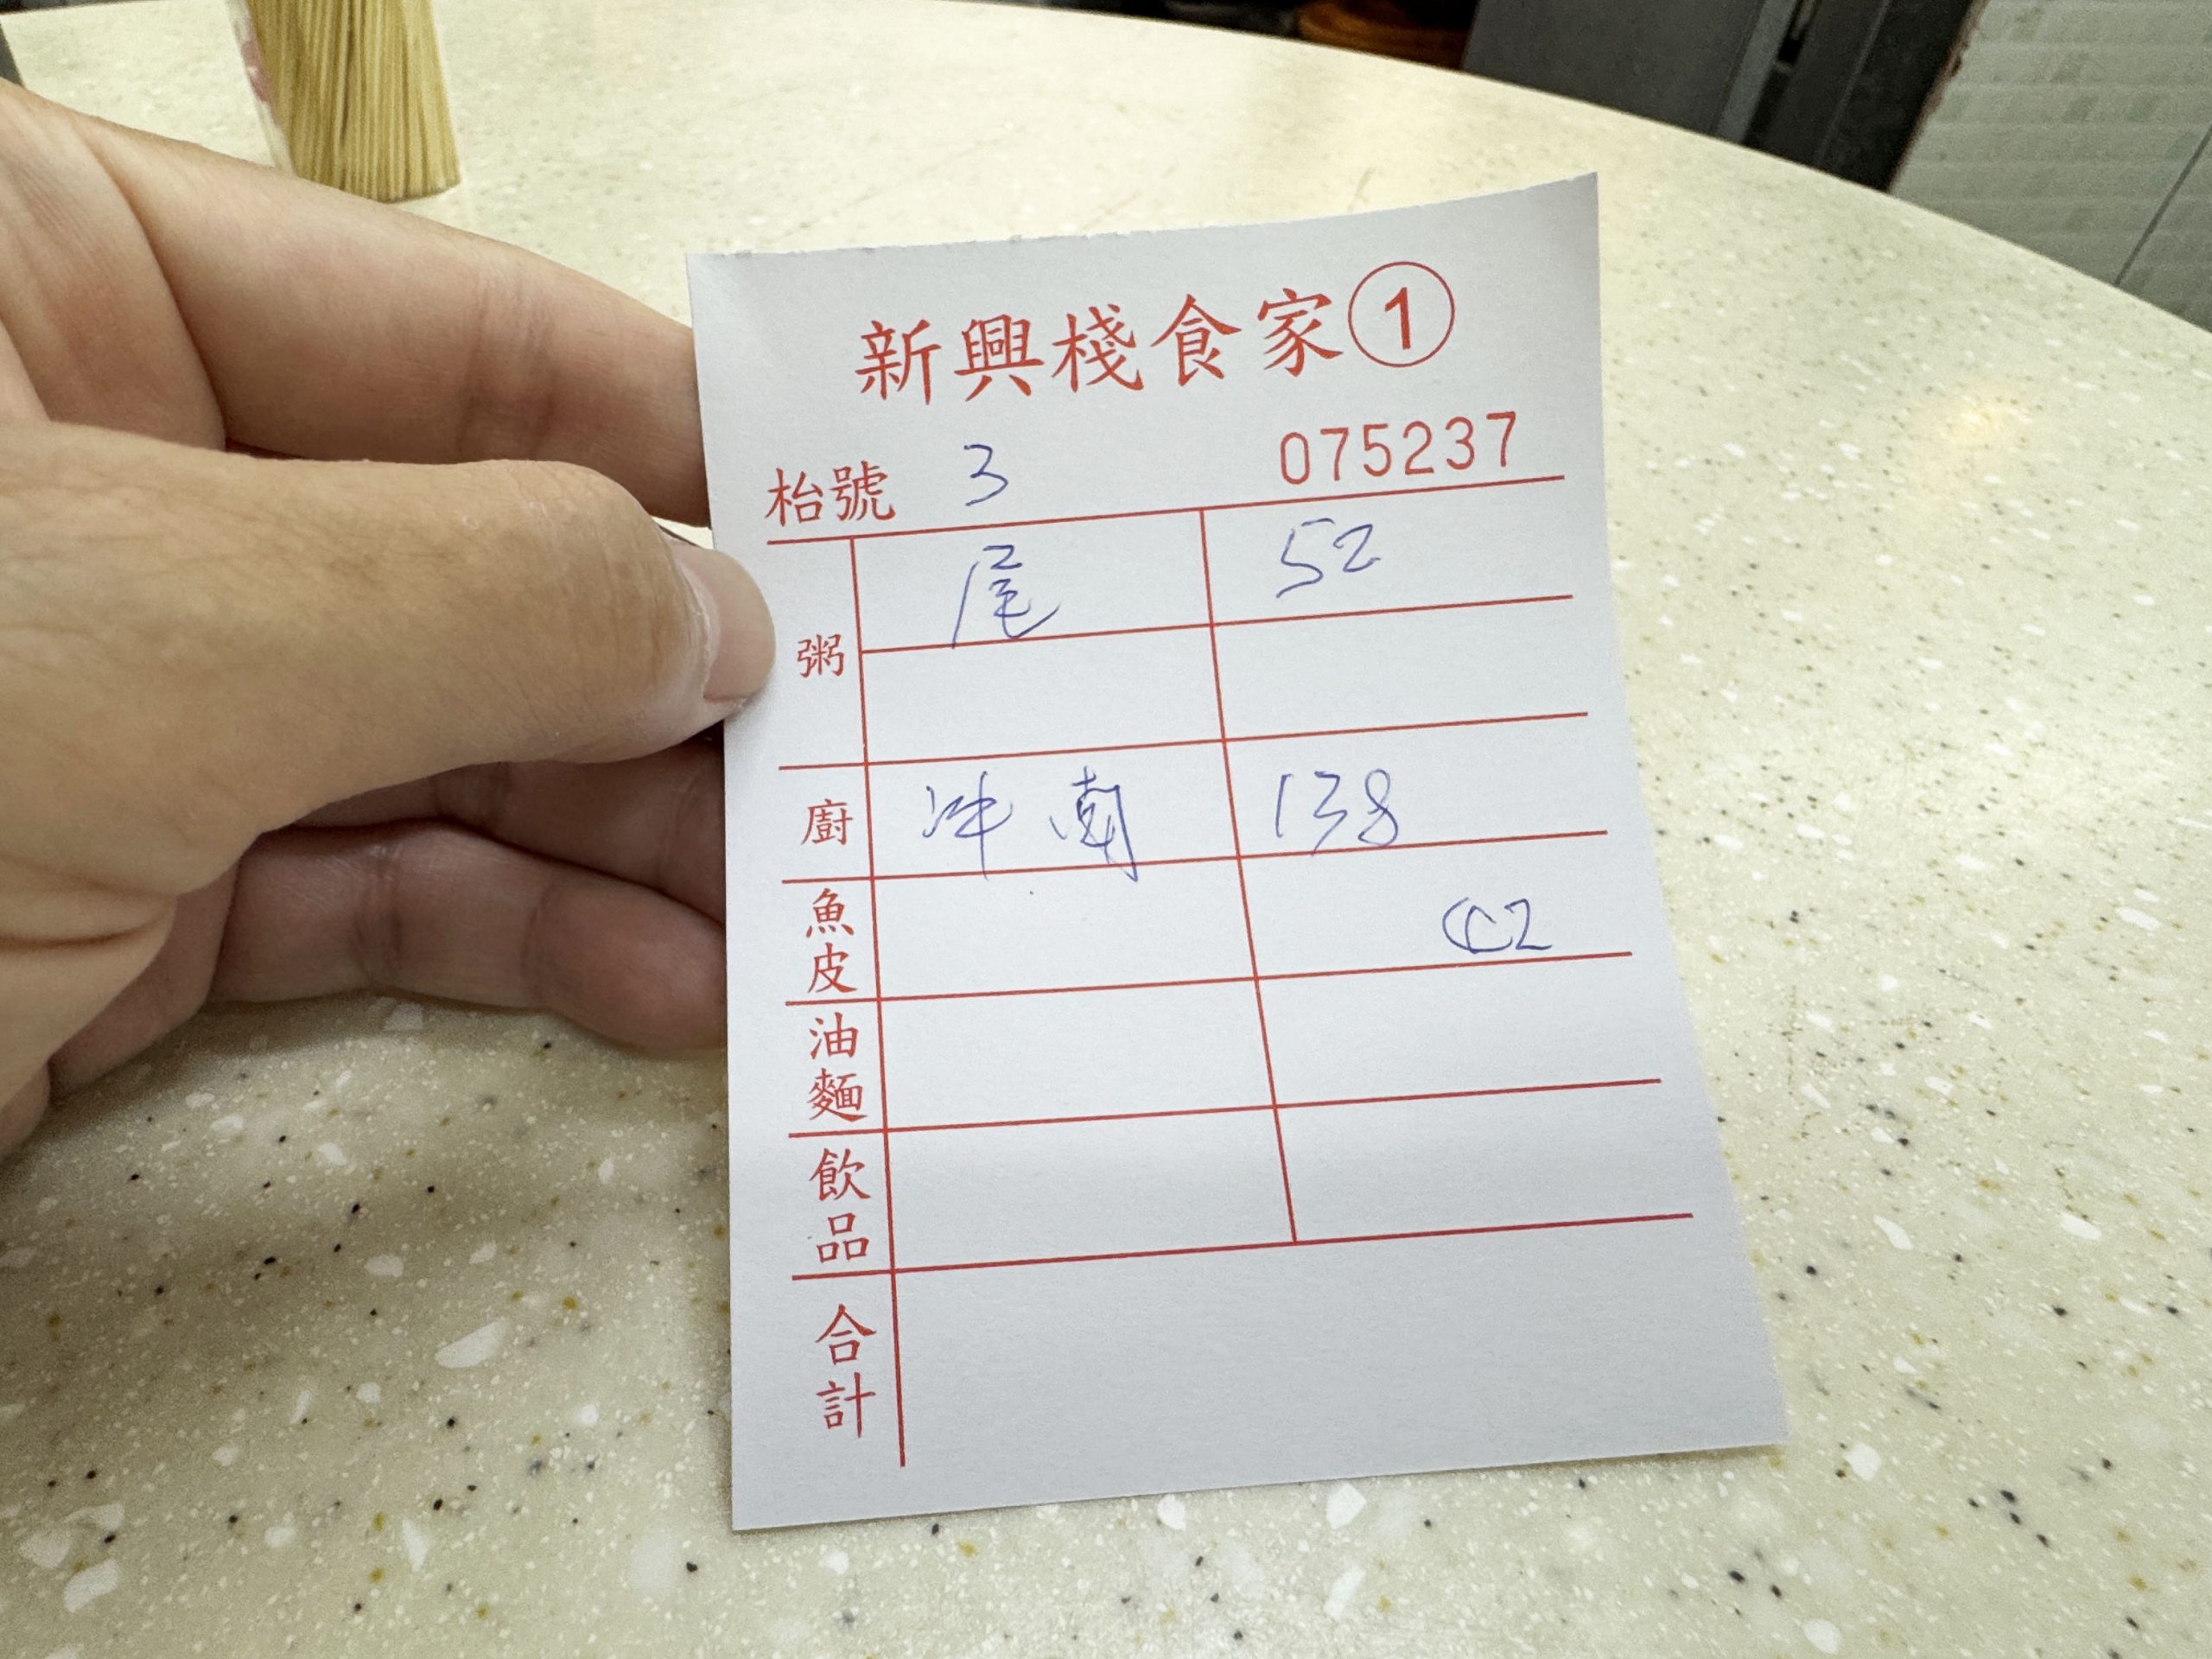 新興棧食家①
枱號 3 075237
粥 尾 52
廚 冲 南 138
魚皮
油麵
飲品
合計